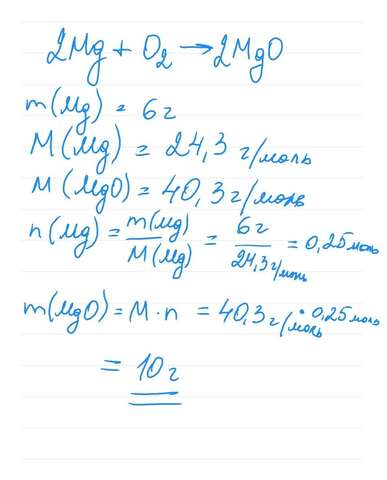 2Mg + O₂ → 2MgO
m(Mg) = 6г
M(Mg) = 24,3 г/моль
M(MgO) = 40,3 г/моль
n(Mg) = m(Mg)/M(Mg) = 6г/24,3г/моль = 0,25 моль
m(MgO) = M · n = 40,3 г/моль · 0,25 моль
= 10г